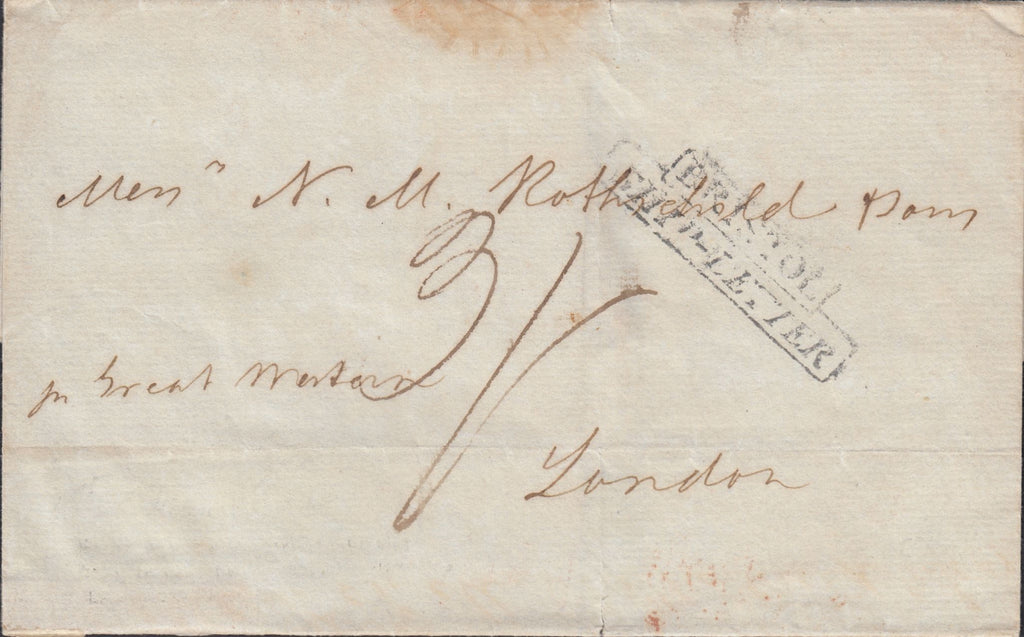 Messrs N. M. Rothschild Sons
BRISTOL
SHIP-LETTER
3/
pr Great Western
London